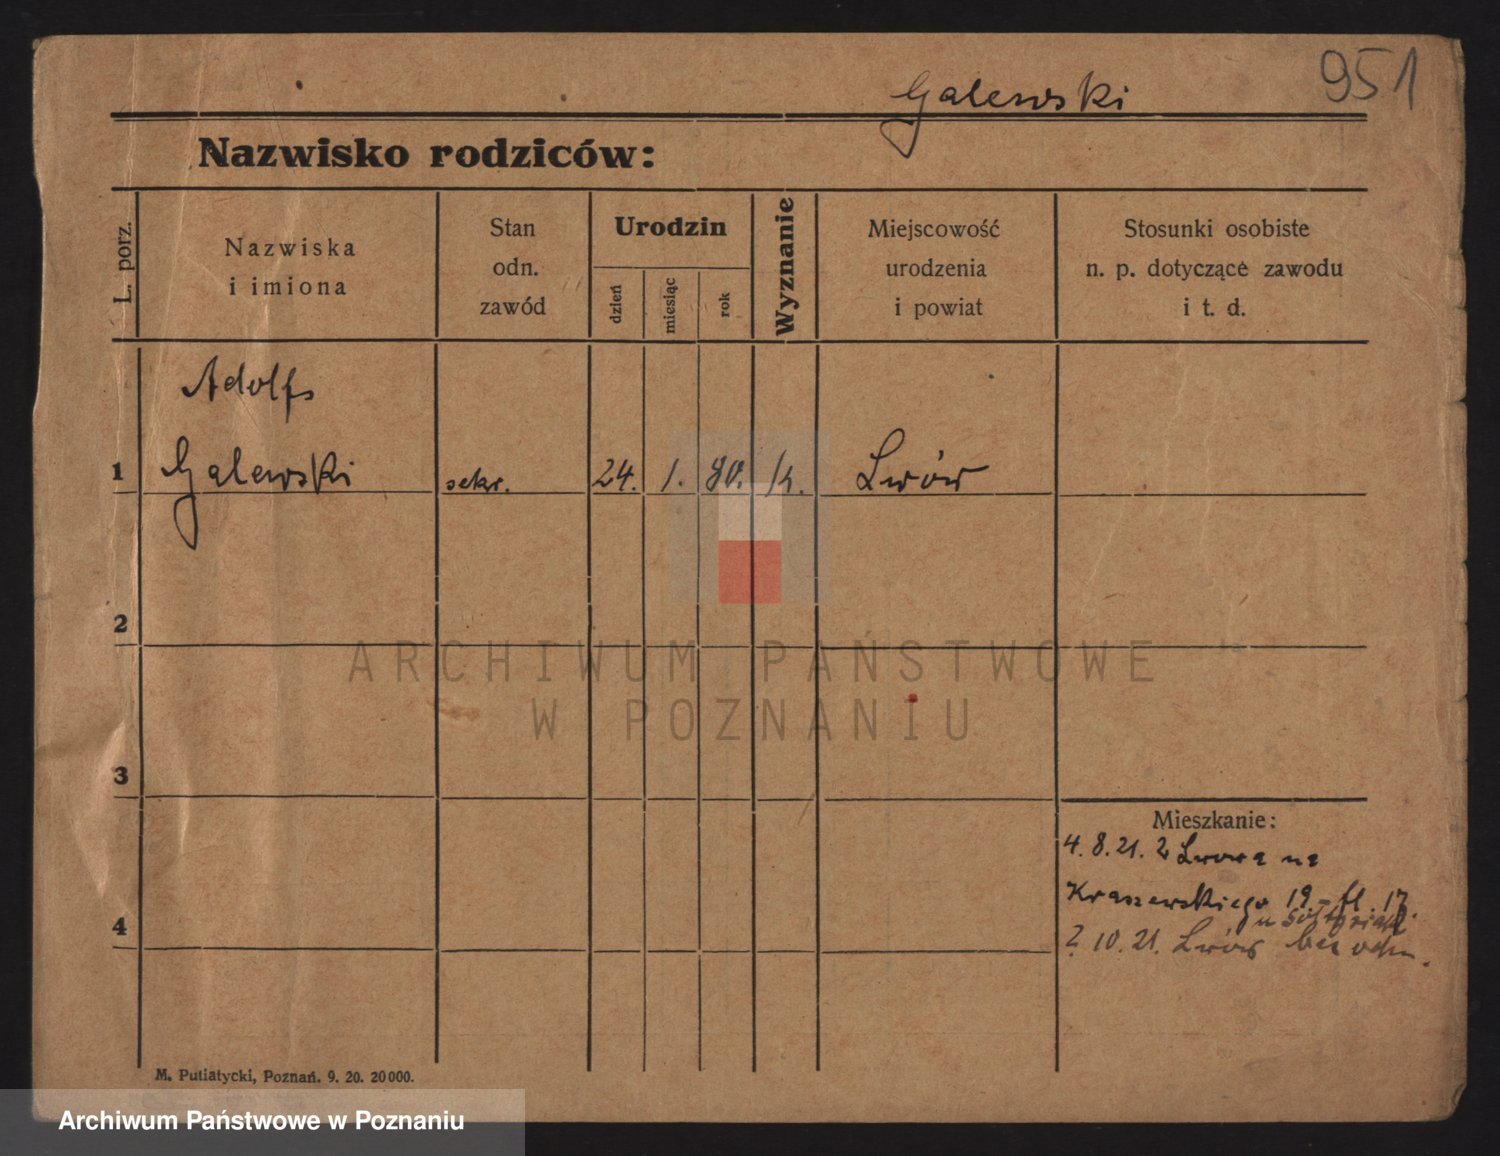 951
Galewski
Nazwisko rodziców:
L. porz.
Nazwiska
i imiona
Stan
odn.
zawód
Urodzin
dzień
miesiąc
rok
Wyznanie
Miejscowość
urodzenia
i powiat
Stosunki osobiste
n. p. dotyczące zawodu
i t. d.
Adolf
1 Galewski sekr. 24. 1. 80. k. Lwów
2
ARCHIWUM PAŃSTWOWE
W POZNANIU
3
Mieszkanie:
4. 8. 21. z Lwowa na
Kraszewskiego 19. 17.
u
4
10. 21. Lwów bez odm.
M. Putiatycki, Poznań. 9. 20. 20000.
Archiwum Państwowe w Poznaniu